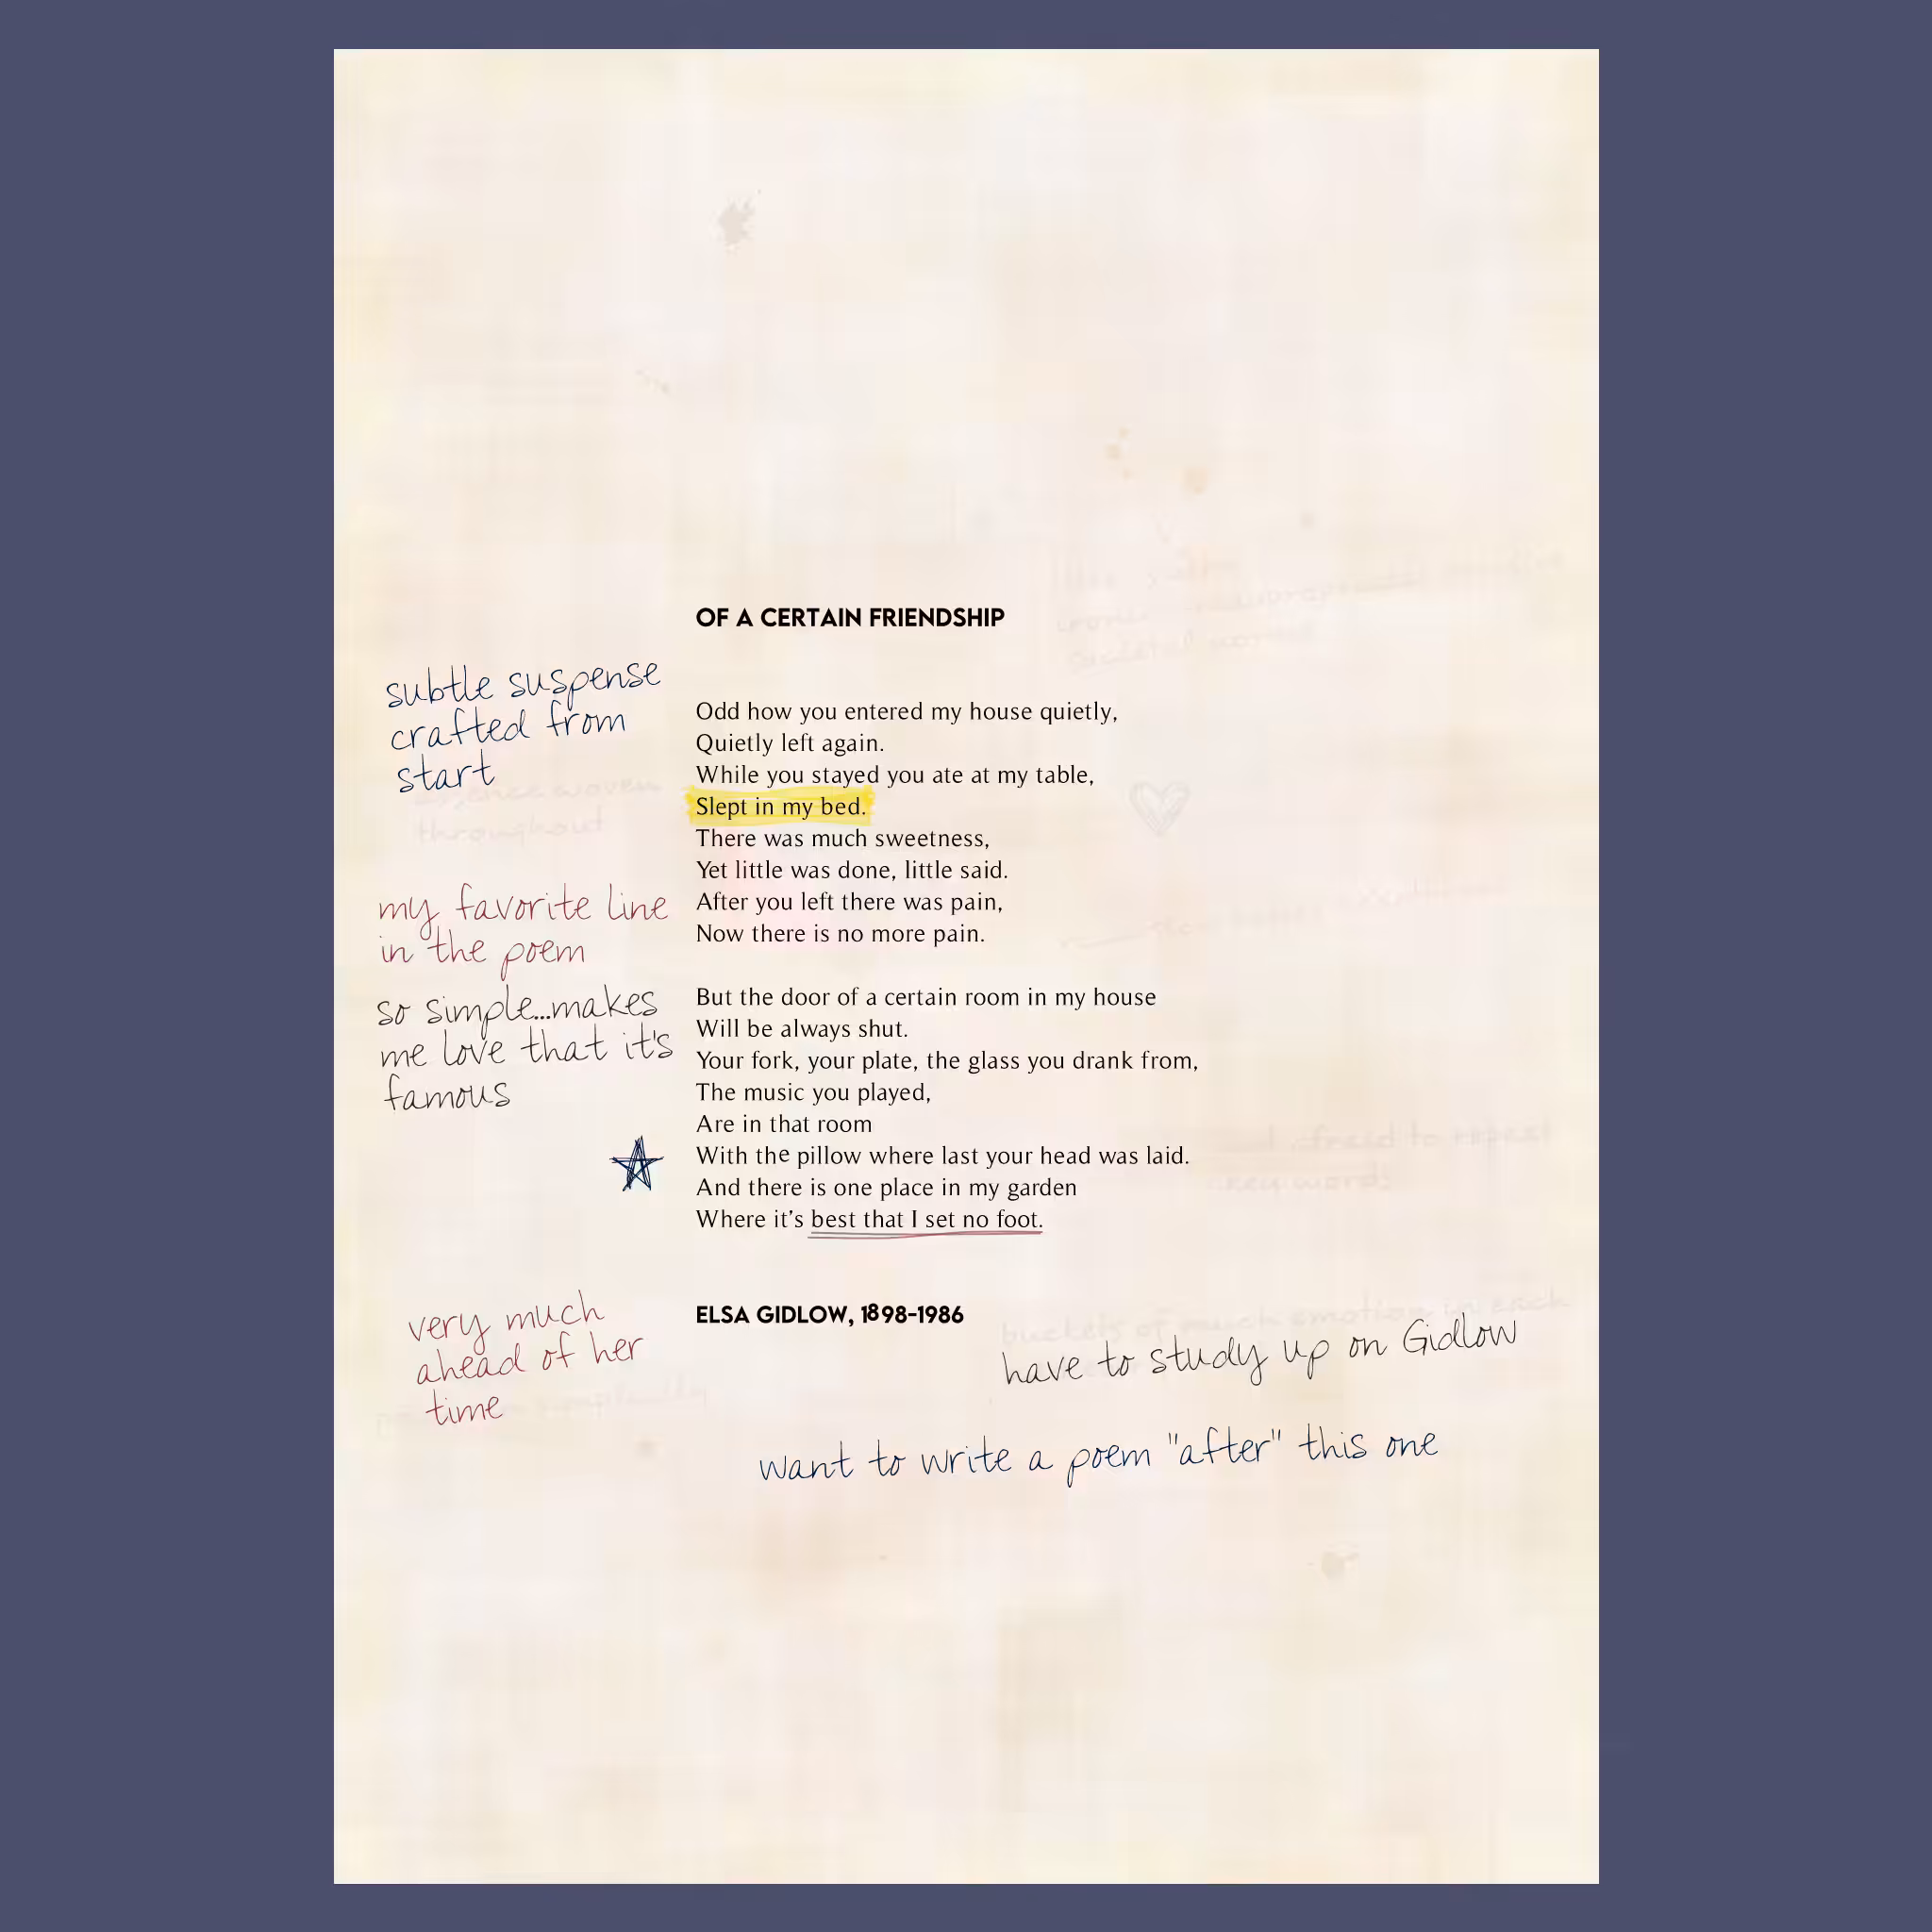 OF A CERTAIN FRIENDSHIP
subtle suspense
crafted from
start
woven
throughout
Odd how you entered my house quietly,
Quietly left again.
While you stayed you ate at my table,
Slept in my bed.
There was much sweetness,
Yet little was done, little said.
After you left there was pain,
Now there is no more pain.
my favorite line
in the poem
so simple...makes
me love that it's
famous
But the door of a certain room in my house
Will be always shut.
Your fork, your plate, the glass you drank from,
The music you played,
Are in that room
With the pillow where last your head was laid.
And there is one place in my garden
Where it's best that I set no foot.
afraid to repeat
key words
ELSA GIDLOW, 1898-1986
very much
ahead of her
time
buckets of much emotion in each
have to study up on Gidlow
want to write a poem "after" this one